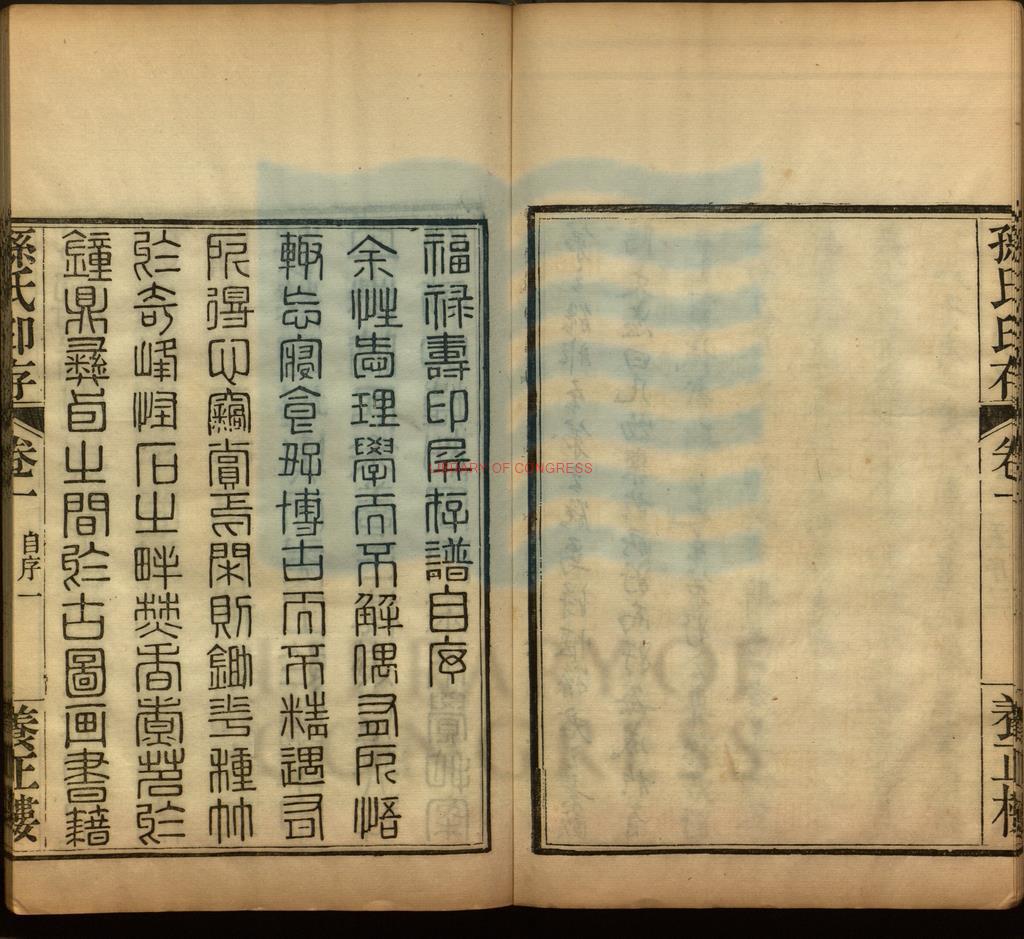 孫氏印存
卷一
養正樓
福祿壽印屏存譜自序
余性嗜理學而不解偶有所悟
輙忘寢食好博古而不精遇有
所得心竊賞焉閑則鋤花種竹
於奇峰怪石之畔焚香煑茗於
鐘鼎彝卣之間於古圖画書籍
孫氏印存
卷一
自序一
養正樓
LIBRARY OF CONGRESS